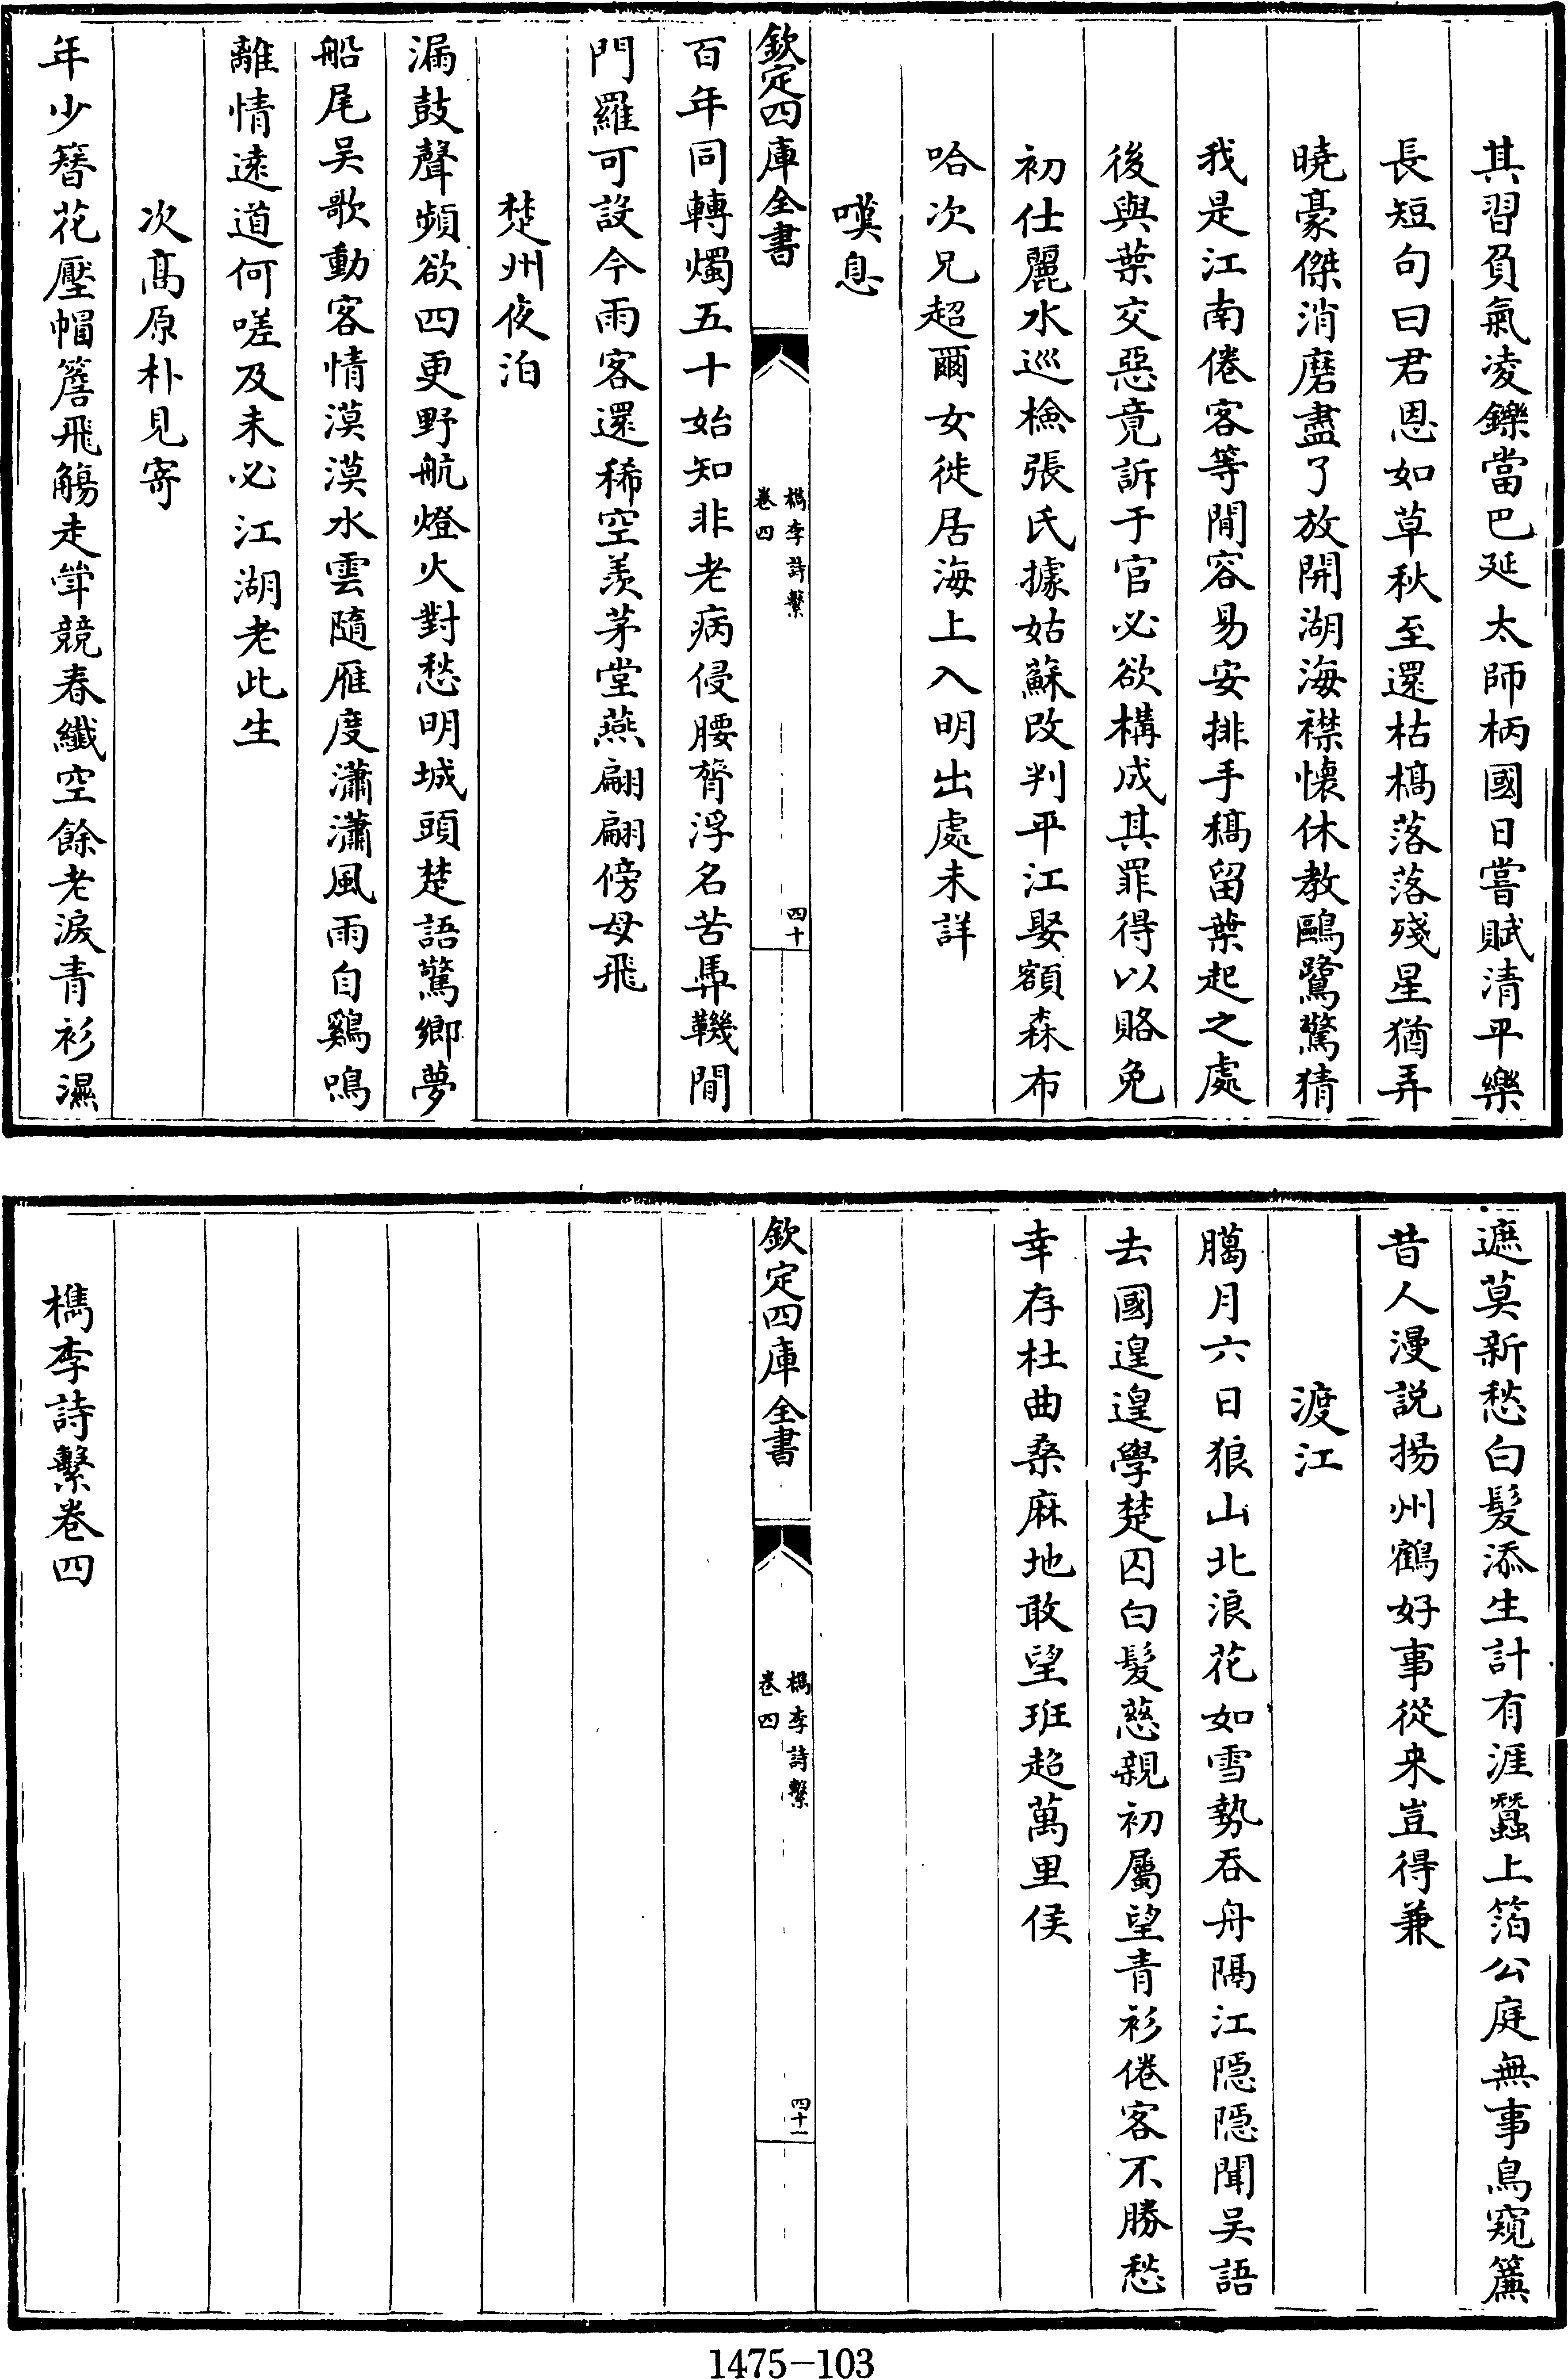 其習負氣凌鑠當巴延太師柄國日嘗賦清平樂
長短句曰君恩如草秋至還枯槁落落殘星猶弄
曉豪傑消磨盡了放開湖海襟懷休教鷗鷺驚猜
我是江南倦客等閒容易安排手稿留葉起之處
後與葉交惡竟訴于官必欲構成其罪得以賂免
初仕麗水巡檢張氏據姑蘇改判平江娶額森布
哈次兄超爾女徙居海上入明出處未詳
嘆息
欽定四庫全書
檇李詩繫
卷四
四十
百年同轉燭五十始知非老病侵腰膂浮名苦馽鞿閒
門羅可設今雨客還稀空羨茅堂燕翩翩傍母飛
楚州夜泊
漏鼓聲頻欲四更野航燈火對愁明城頭楚語驚鄉夢
船尾吴歌動客情漠漠水雲隨雁度瀟瀟風雨自鷄鳴
離情逺道何嗟及未必江湖老此生
次髙原朴見寄
年少簪花壓帽簷飛觴走斝競春纎空餘老淚青衫濕
遮莫新愁白髮添生計有涯蠶上箔公庭無事鳥窺簾
昔人漫説揚州鶴好事從来豈得兼
渡江
臈月六日狼山北浪花如雪勢吞舟隔江隱隱聞吴語
去國遑遑學楚囚白髮慈親初屬望青衫倦客不勝愁
幸存杜曲桑麻地敢望班超萬里侯
欽定四庫全書
檇李詩繫
卷四
四十一
檇李詩繫卷四
1475-103